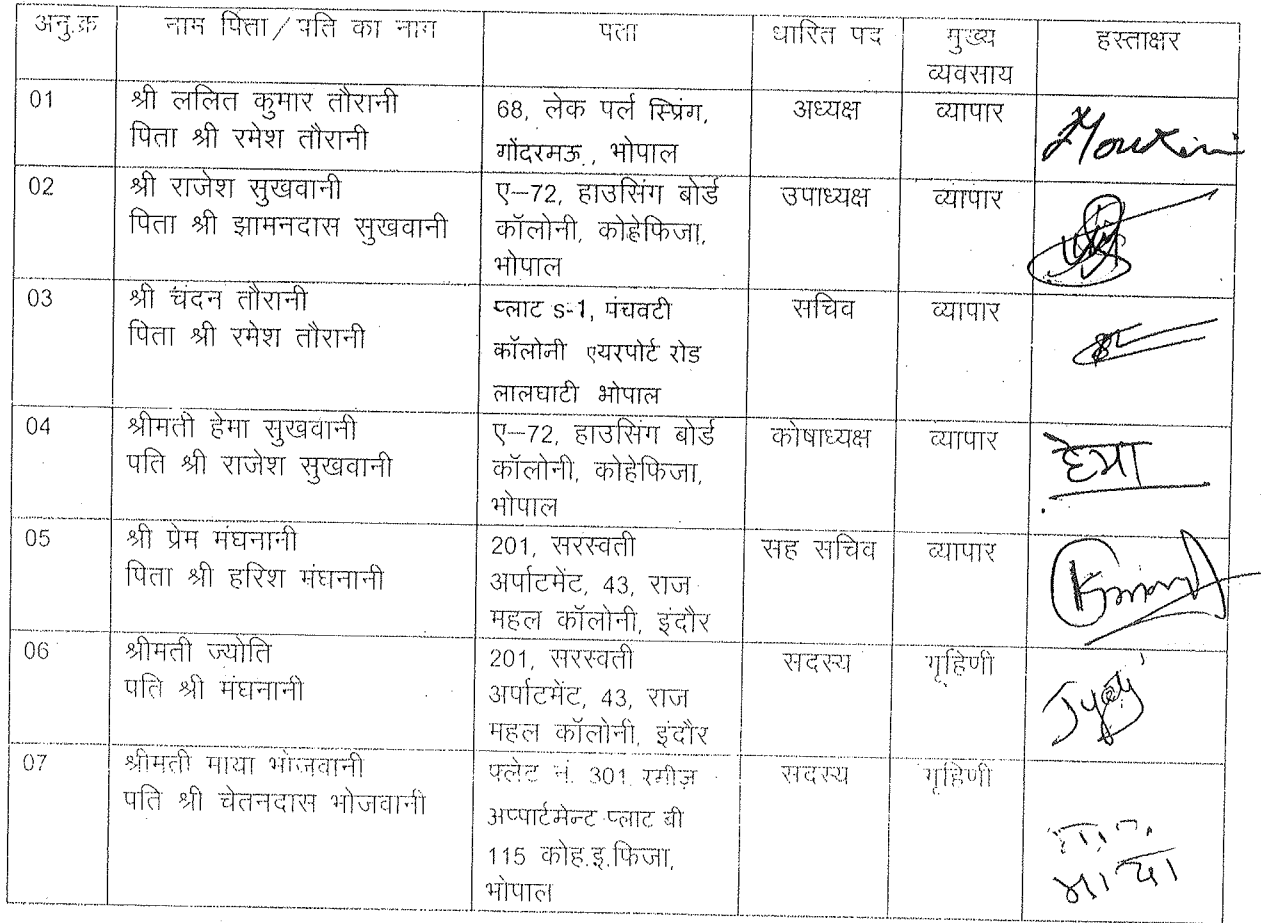 अनु.क्र नाम पिता/पति का नाग पता धारित पद मुख्य व्यवसाय हस्ताक्षर
01 श्री ललित कुमार तौरानी
पिता श्री रमेश तौरानी
68, लेक पर्ल स्प्रिंग,
गोंदरमऊ, भोपाल
अध्यक्ष व्यापार
02 श्री राजेश सुखवानी
पिता श्री झामनदास सुखवानी
ए–72, हाउसिंग बोर्ड
कॉलोनी, कोहेफिजा,
भोपाल
उपाध्यक्ष व्यापार
03 श्री चंदन तौरानी
पिता श्री रमेश तौरानी
प्लाट s-1, पंचवटी
कॉलोनी एयरपोर्ट रोड
लालघाटी भोपाल
सचिव व्यापार
04 श्रीमती हेमा सुखवानी
पति श्री राजेश सुखवानी
ए–72, हाउसिंग बोर्ड
कॉलोनी, कोहेफिजा,
भोपाल
कोषाध्यक्ष व्यापार हेमा
05 श्री प्रेम मंघनानी
पिता श्री हरिश मंघनानी
201, सरस्वती
अर्पाटमेंट, 43, राज
महल कॉलोनी, इंदौर
सह सचिव व्यापार
06 श्रीमती ज्योति
पति श्री मंघनानी
201, सरस्वती
अर्पाटमेंट, 43, राज
महल कॉलोनी, इंदौर
सदस्य गृहिणी Jyoti
07 श्रीमती माया भोजवानी
पति श्री चेतनदास भोजवानी
फ्लेट नं. 301 रमीज़
अप्पार्टमेन्ट प्लाट बी
115 कोह.इ.फिजा,
भोपाल
सदस्य गृहिणी माया